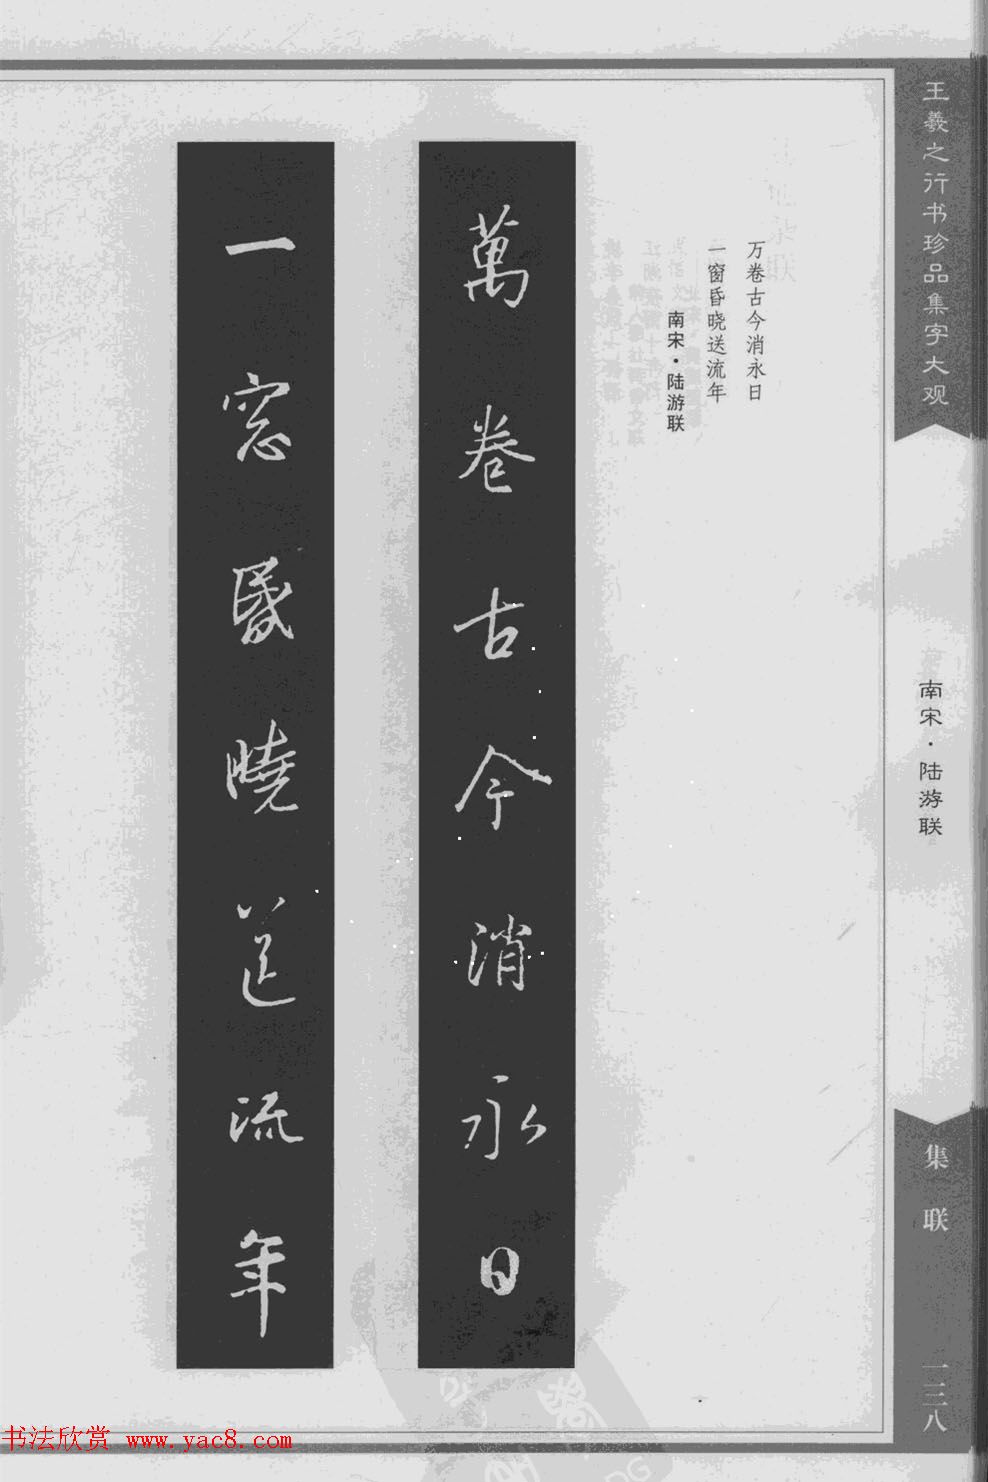 王羲之行书珍品集字大观
南宋·陆游联
集联
一三八
万卷古今消永日
一窗昏晓送流年
南宋·陆游联
萬卷古今消永日
一窓昏曉送流年
书法欣赏 www.yac8.com